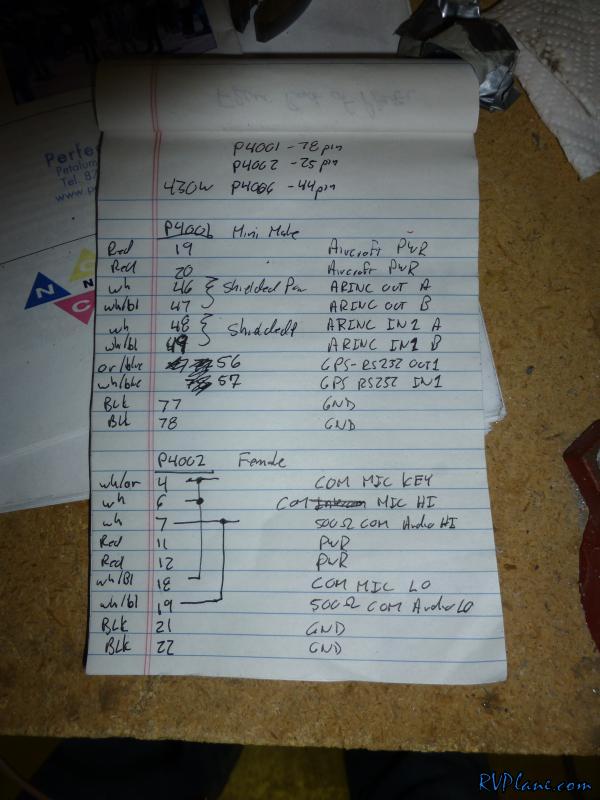 P4001 - 78 pin
P4002 - 25 pin
430W P4006 - 44 pin
Perfe
Petalum
Tel. 87
www.p
N C
P4001 Mini Male
Red 19 Aircraft PWR
Red 20 Aircraft PWR
wh 46 Shielded Pair ARINC OUT A
wh/bl 47 ARINC OUT B
wh 48 Shielded ARINC IN1 A
wh/bl 49 ARINC IN1 B
or/blue 56 GPS-RS232 OUT1
wh/blue 57 GPS RS232 IN1
BLK 77 GND
BLK 78 GND
P4002 Female
wh/or 4 COM MIC KEY
wh 6 COM Intercom MIC HI
wh 7 500Ω COM Audio HI
Red 11 PWR
Red 12 PWR
wh/Bl 18 COM MIC LO
wh/bl 19 500Ω COM Audio LO
BLK 21 GND
BLK 22 GND
RVPlane.com